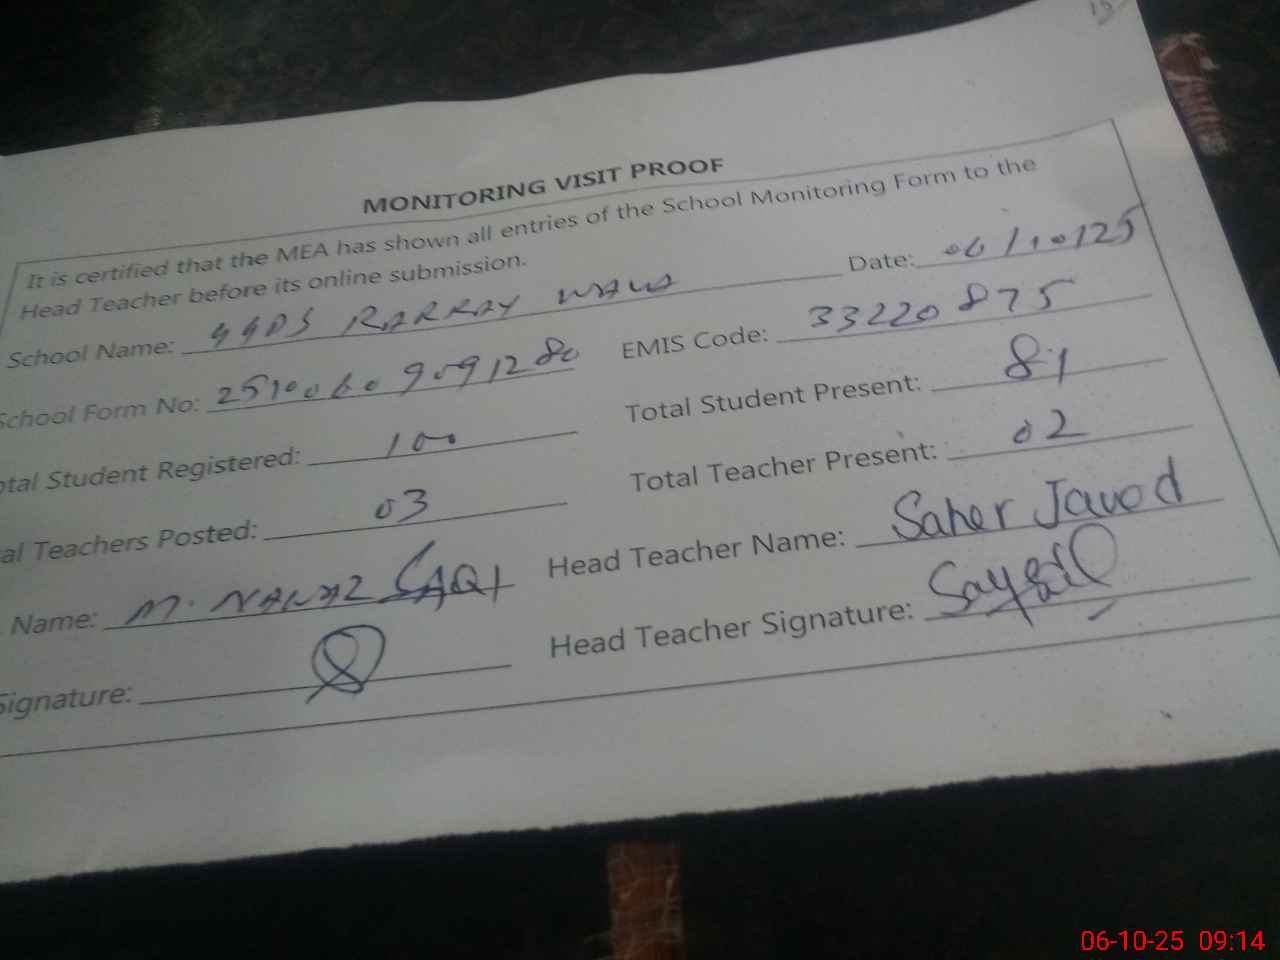 MONITORING VISIT PROOF
It is certified that the MEA has shown all entries of the School Monitoring Form to the
Head Teacher before its online submission. Date: 06/10/25
School Name: GGPS RARRAY WALA
EMIS Code: 33220875
School Form No: 25100609091280
Total Student Present: 81
otal Student Registered: 100
Total Teacher Present: 02
al Teachers Posted: 03
Head Teacher Name: Saher Javed
Name: M. NAWAZ SAQI
Head Teacher Signature:
Signature:
06-10-25 09:14